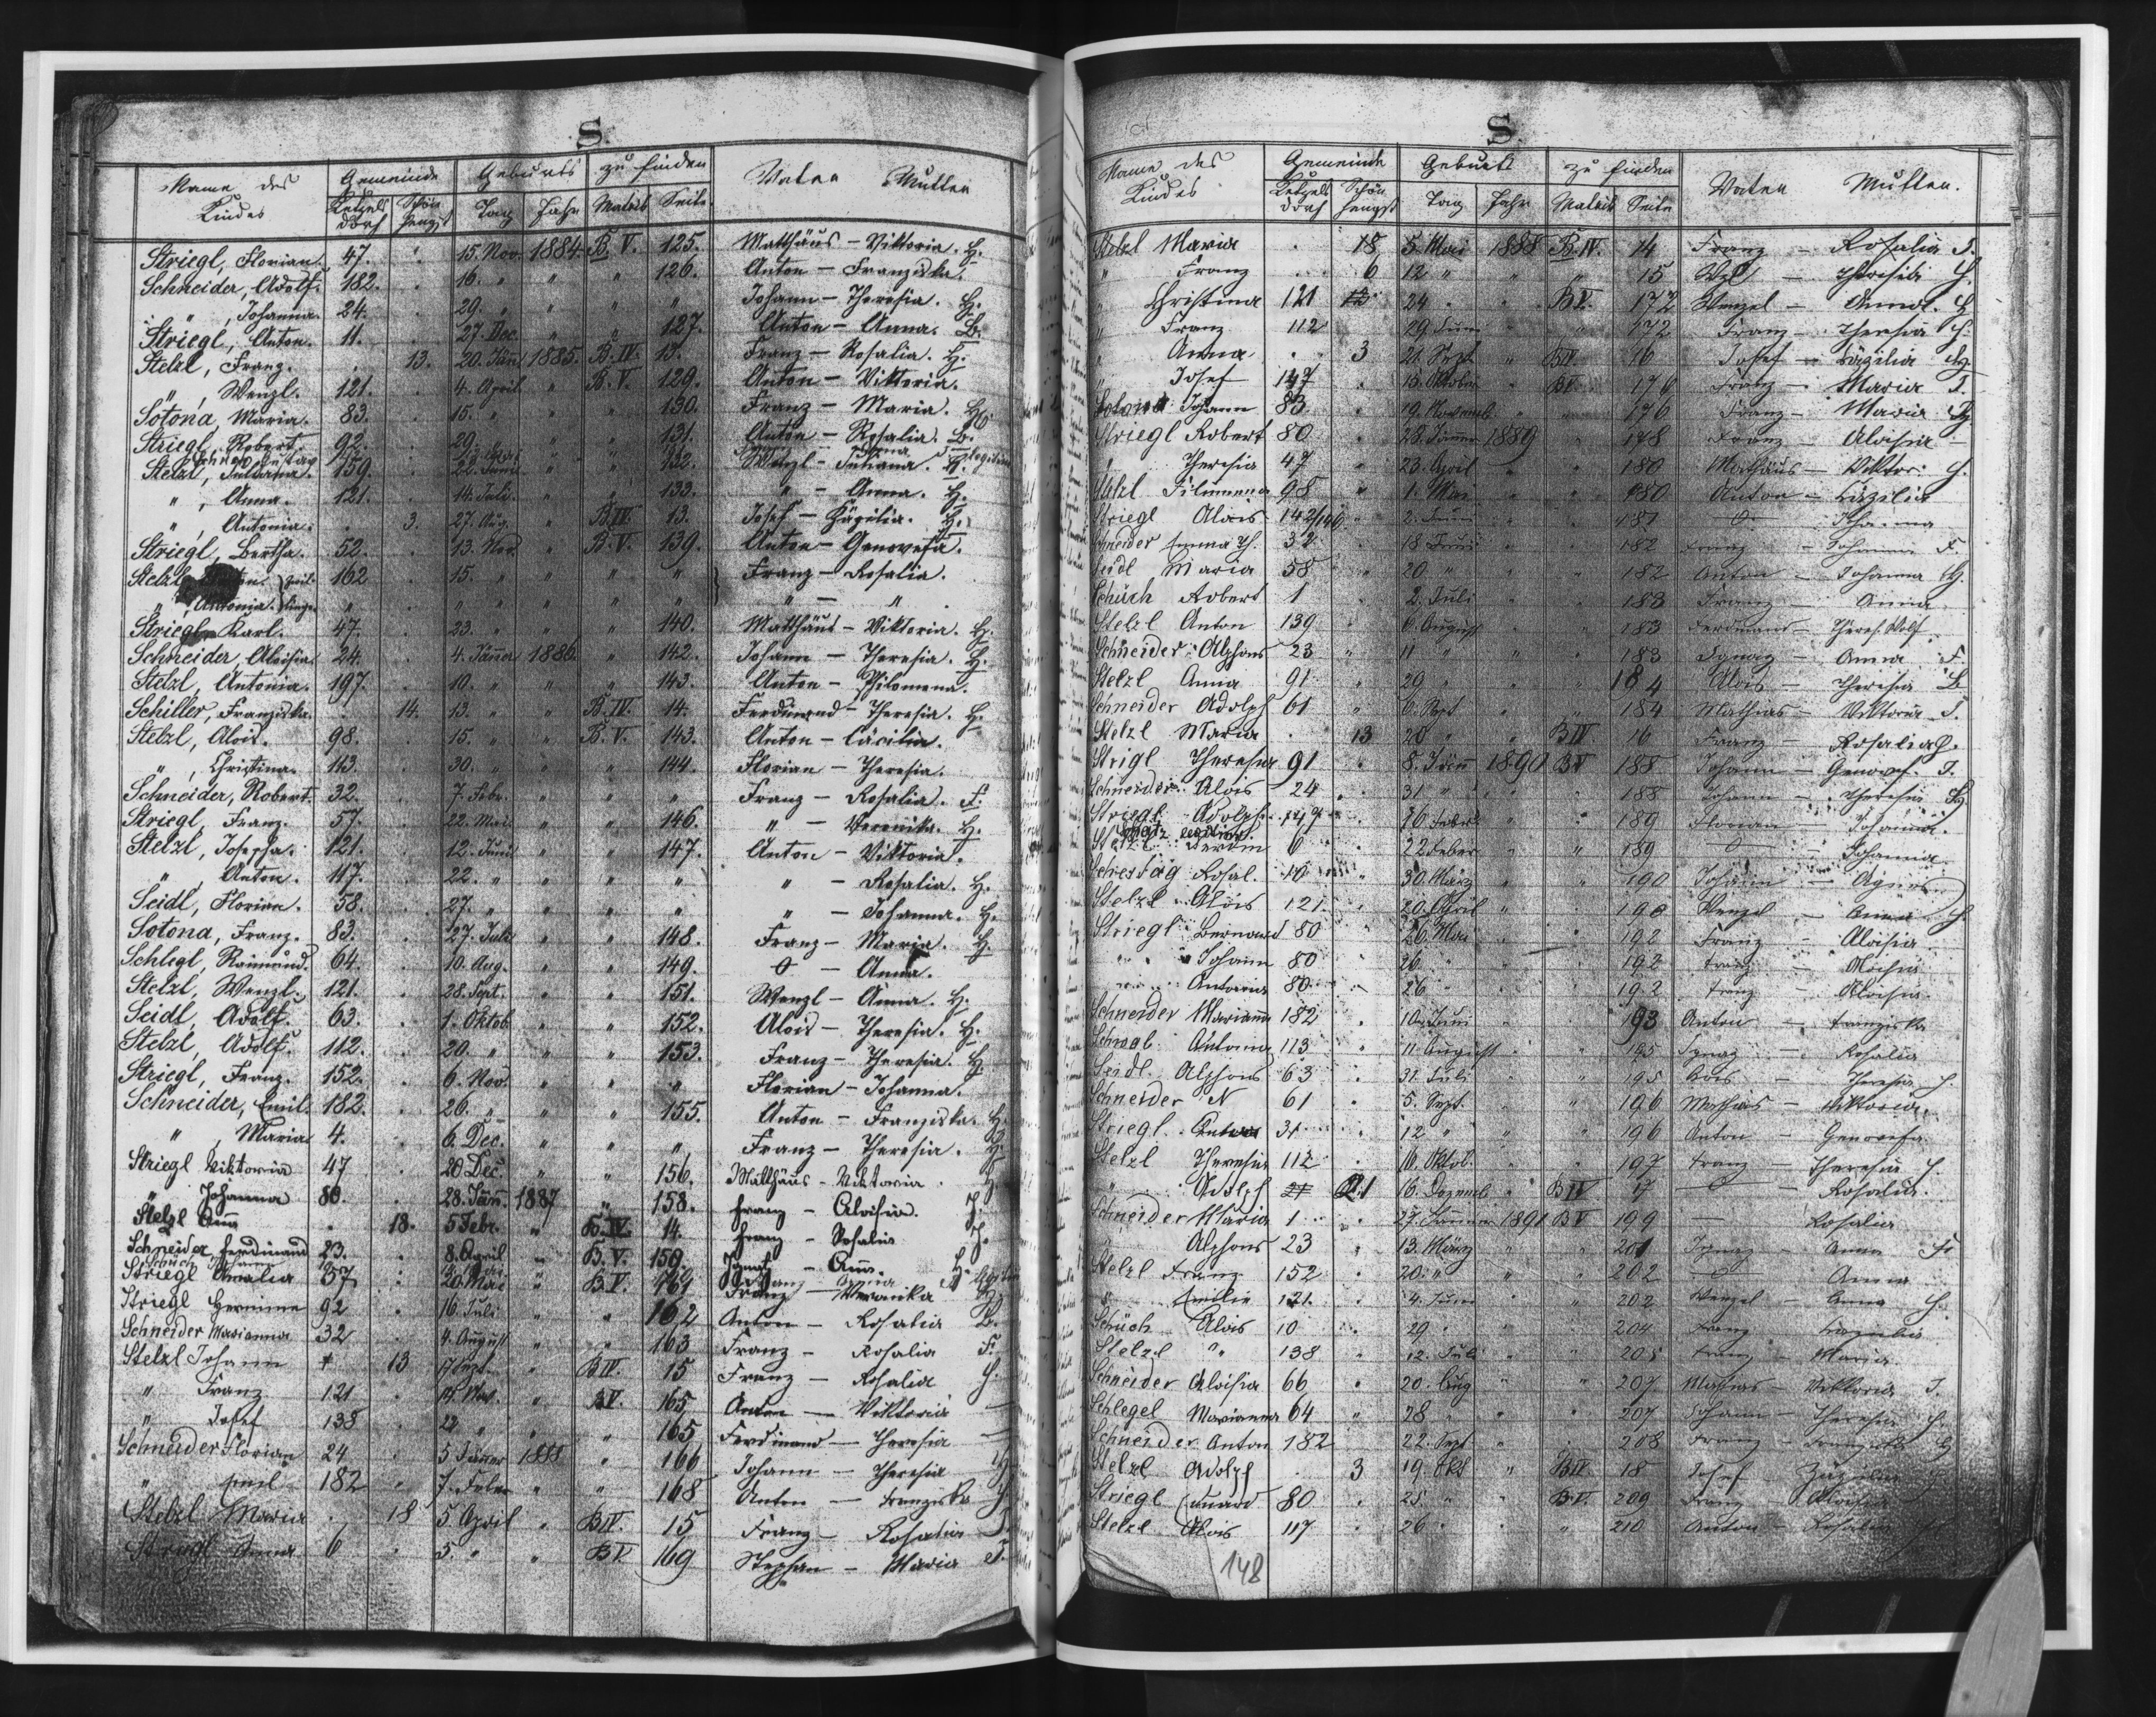 S.
Name des Kindes Gemeinde Ketzelsdorf Schönhengst Geburts Tag Jahr zu finden Matrik Seite Vater Mutter
Striegl, Florian. 47. 15. Nov. 1884. B. V. 125. Matthäus – Viktoria. H.
Schneider, Adolf. 182. 16. " " " 126. Anton – Franziska.
" , Johanna. 24. 29. " " " " Johann – Theresia. H.
Striegl, Anton. 11. 27. Dec. " " 127. Anton – Anna. B.
Stelzl, Franz. 13. 20. Jän. 1885. B. IV. 13. Franz – Rosalia. H.
" , Wenzl. 121. 4. April " B. V. 129. Anton – Viktoria.
Sotona, Maria. 83. 15. " " " 130. Franz – Maria. H.
Striegl, Robert. 92. 29. " " " 131. Anton – Rosalia. B.
Stelzl, Juliana. 159. 22. Juni " " 132. Wenzl – Juliana. H.
" , Anna. 121. 14. Juli. " " 133. " – Anna. H.
" , Antonia. 3. 27. Aug. " B. IV. 13. Josef – Cäzilia. H.
Striegl, Bertha. 52. 13. Nov. " B. V. 139. Anton – Genovefa.
Stelzl, 162 15. " " " " Franz – Rosalia.
" , Antonia. " " " " " " " – "
Striegl, Karl. 47. 23. " " " 140. Matthäus – Viktoria. H.
Schneider, Aloisia. 24. 4. Jänner 1886. " 142. Johann – Theresia. H.
Stelzl, Antonia. 197. 10. " " " 143. Anton – Philomena.
Schiller, Franziska. 14. 13. " " B. IV. 14. Ferdinand – Theresia. H.
Stelzl, Alois. 98. 15. " " B. V. 143. Anton – Cäcilia.
" , Christina. 113. 30. " " " 144. Florian – Theresia.
Schneider, Robert. 32. 7. Febr. " " " Franz – Rosalia. F.
Striegl, Franz. 57. 22. Mai " " 146. " – Veronika. H.
Stelzl, Josepha. 121. 12. Juni " " 147. Anton – Viktoria.
" , Anton. 117. 22. " " " " " – Rosalia. H.
Seidl, Florian. 58. 27. " " " " " – Johanna. H.
Sotona, Franz. 83. 27. Juli " " 148. Franz – Maria. H.
Schlegl, Raimund. 64. 10. Aug. " " 149. O – Anna.
Stelzl, Wenzl. 121. 28. Sept. " " 151. Wenzl – Anna. H.
Seidl, Adolf. 63. 1. Oktob. " " 152. Alois – Theresia. H.
Stelzl, Adolf. 112. 20. " " " 153. Franz – Theresia. H.
Striegl, Franz. 152. 6. Nov. " " " Florian – Johanna.
Schneider, Emil. 182. 26. " " " 155. Anton – Franziska. H.
" , Maria 4. 6. Dec. " " " Franz – Theresia. H.
Striegl Viktoria 47 20 Dec. " " 156. Matthäus – Viktoria. H.
" Johanna 80. 28. Jänn. 1887 " 158. Franz – Aloisia. J.
Stelzl Anna 18. 5 Febr. " B. IV. 14. Franz – Rosalia J.
Schneider, Ferdinand 23. 8. April " B. V. 159. Ignatz – Anna. H.
Striegl Amalia 57 20. Mai " B V. 161 Franz – Veronika H.
Striegl Hermine 92 16. Juli " " 162 Anton – Rosalia B.
Schneider Marianna 32 4. August " " 163 Franz – Rosalia F.
Stelzl Johann 13 17 Sept. " B IV. 15 Franz – Rosalia H.
" Franz 121 14. Nov. " B V. 165 Anton – Viktoria –
" Josef 138 22 " " " 165 Ferdinand – Theresia –
Schneider Florian 24 5 Jänner 1888 " 166 Johann – Theresia H
" Emil 182 7. Feber " " 168 Anton – Franziska H
Stelzl Maria 18 5 April " B IV. 15 Franz – Rosalia J.
Striegl Anna 6 5. " " B V 169 Stephan – Maria J.
S.
Name des Kindes Gemeinde Ketzelsdorf Schönhengst Geburts Tag Jahr zu finden Matrik Seite Vater Mutter.
Stelzl Maria 18 5. Mai 1888 B. IV. 14 Franz – Rosalia J.
" Franz 6 12 " " " 15 Wzl – Theresia H.
" Christina 121 24 " " B V. 172 Wenzel – Anna. H
" Franz 112 29. Juni " " 172 Franz – Theresia H.
" Anna 3 21. Sept " B IV. 16 Josef – Cäzilia H
" Josef 147 15. Oktober " B V. 176 Franz – Maria J.
Sotona Johann 83 19. Novemb " " 176 Franz – Maria H
Striegl Robert 80 28. Jänner 1889 " 178 Franz – Aloisia –
" Theresia 47 23. April " " 180 Mathäus – Viktor: H.
Stelzl Filumena 98 1. Mai " " 180 Anton – Cäzilia
Striegl Alois 142/146 2. Juni " " 181 O – Johanna
Schneider Emma Th. 32 18 Juni " " 182 Franz – F.
Seidl Maria 58 20 " " " 182 Anton – Johanna H.
Schüch Robert 1 2. Juli " " 183 Franz – Anna
Stelzl Anton 139 6. August " " 183 Ferdinand – Theres. Wolf
Schneider Alphons 23 11 " " " 183 Ignaz – Anna F.
Stelzl Anna 91 29 " " " 184 Alois – Theresia B
Schneider Adolph 61 6. Sept " " 184 Mathias – Viktoria J.
Stelzl Maria 13 20 " " B IV 16 Franz – Rosalia H.
Strigl Theresia 91 8. Jänn 1890 B V 188 Johann – Genovef. J.
Schneider Alois 24 31 " " " 188 Johann – Theresia H
Striegl Adolph 16 Feber " " 189 Florian – Johanna.
Stelzl 6 22 Feber " " 189 – Johanna
Rosal. 10 30. März " " 190 Johann – Agnes
Stelzl Alois 121. 20. April " 190 Wenzel – Anna H
Striegl Bernard 80 26. Mai " 192 Franz – Aloisia
" Johann 80 26. " " 192 Franz – Aloisia
" Antonia 80 26 " " 192 Franz – Aloisia.
Schneider Marianna 182 10. Juni " 193 Anton – Franziska
Antonia 113 11. August " 195 Ignaz – Rosalia
Seidl Alphons 63 31. Juli " 195 Alois – Theresia H
Schneider N 61 5. Sept. " 196 Mathias – Viktoria.
Striegl 31 12 " " 196 Anton – Genovefa
Stelzl Theresia 112 16. Oktob. " 197 Franz – Theresia H.
" Adolph 21 16. Dezemb " B IV 17 O – Rosalia.
Schneider Maria 1 27. Jänner 1891 B V 199 – Rosalia
" Alphons 23 13. März " " 201 Ignaz – Anna H
Stelzl Franz 152 20. " " " 202 O Anna
" Emilie 121. 4. Juni " " 202 Wenzel – Anna H.
Schüch Alois 10 29 " " " 204 Franz
Stelzl " 138 12. Juli " " 205 Franz – Maria
Schneider Aloisia 66 20. Aug " " 207 Mathias – Viktoria J.
Schlegel Marianna 64 28 " " " 207 Johann – Theresia H.
Schneider Anton 182 22. Sept " 208 Franz – Franziska H
Stelzl Adolph 3 19. Okt " B IV. 18 Josef
Striegl Eduard 80 25 " " B V. 209 Franz – Aloisia
Stelzl Alois 117 26 " " " 210 Anton – Rosalia
148